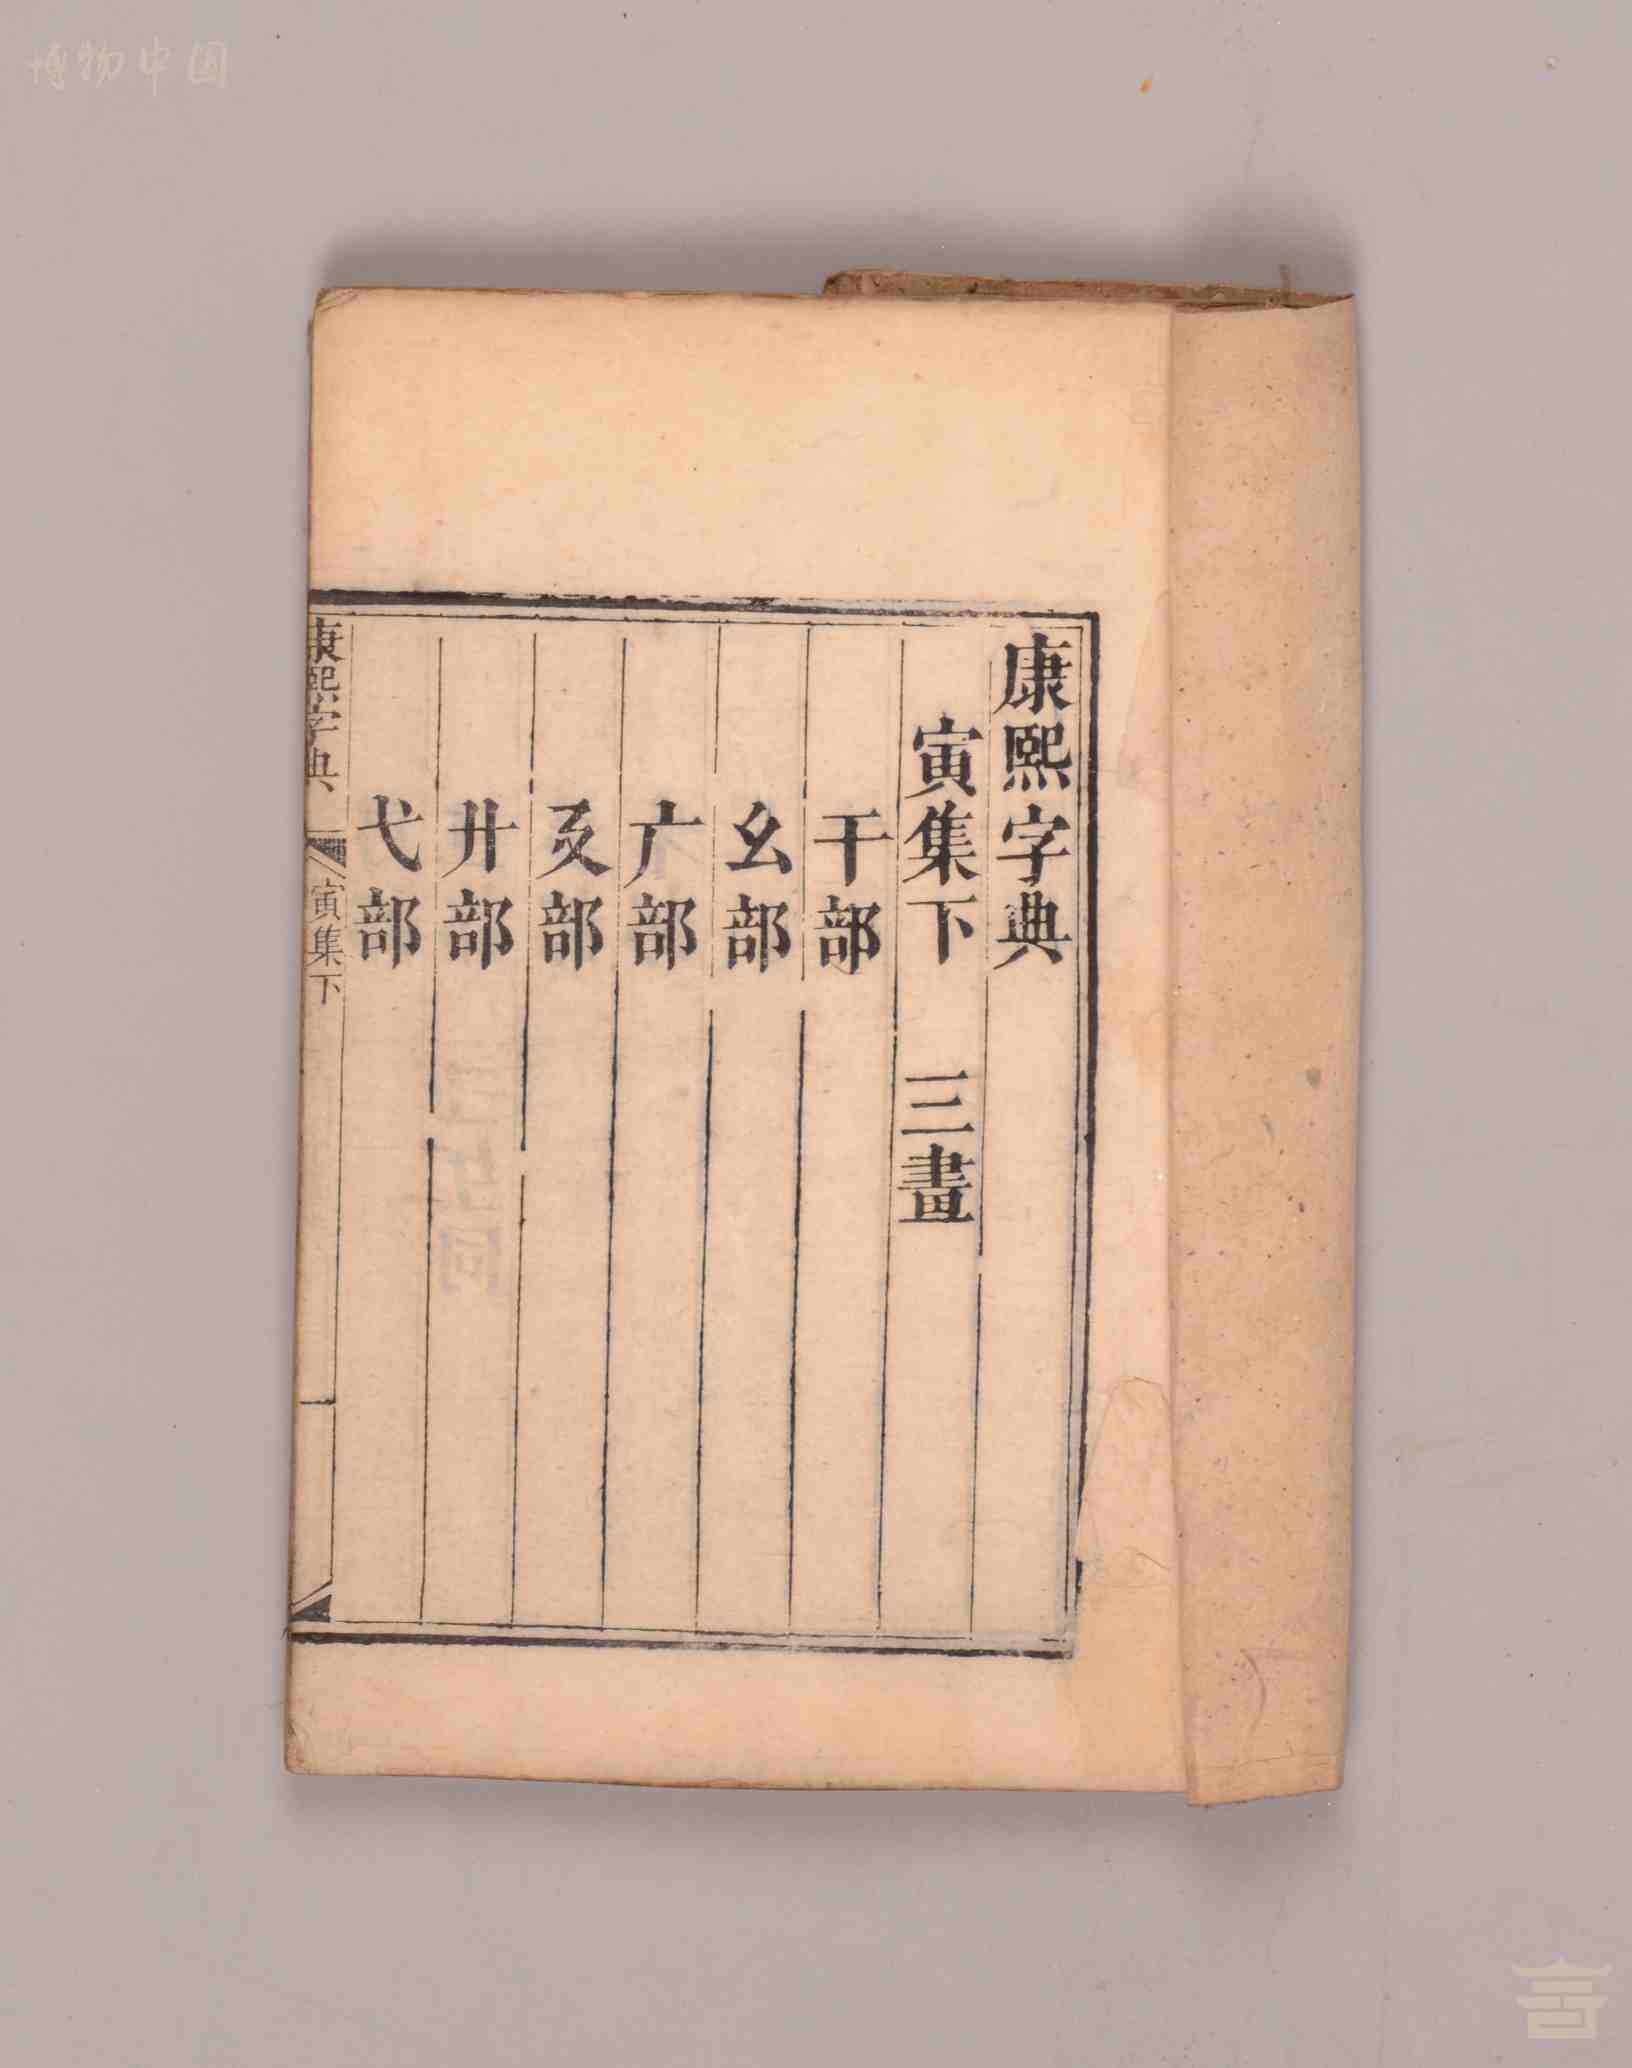 康熙字典
寅集下　三畫
干部
幺部
广部
廴部
廾部
弋部
康熙字典
寅集下
博物中国